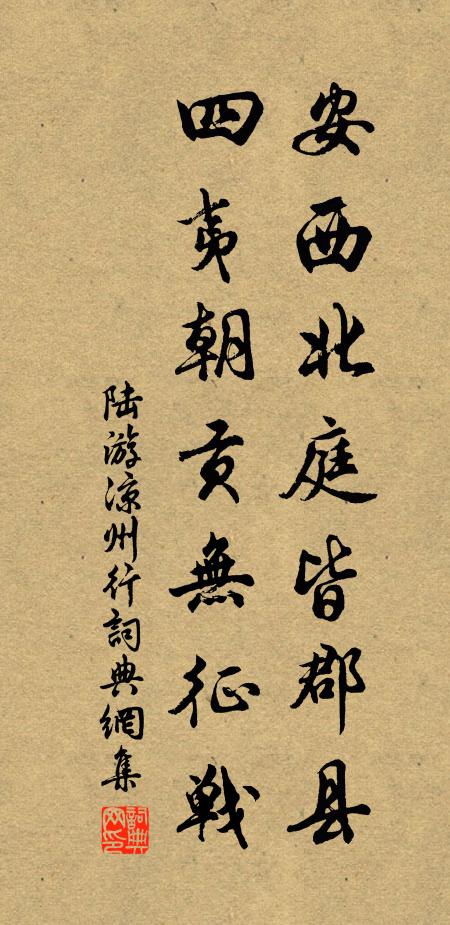 安西北庭皆郡县
四夷朝贡無征戦
陆游凉州行詞典網集
詞典网印